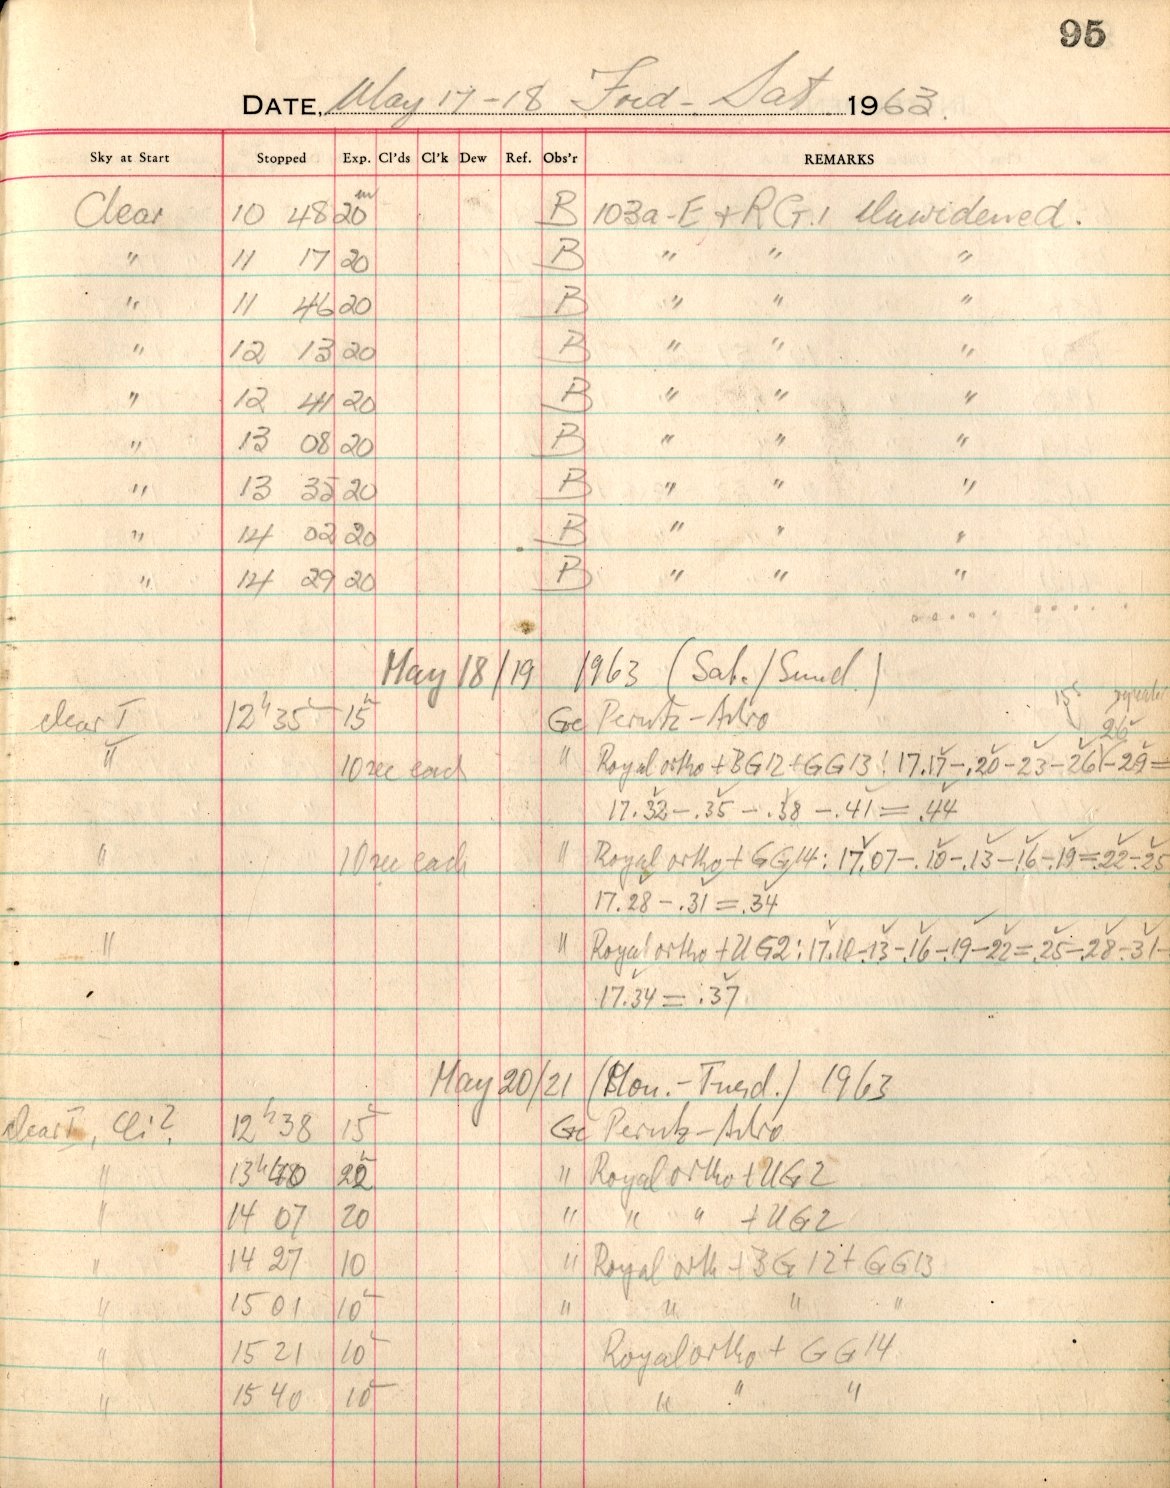 95
DATE, May 17-18 Frid - Sat. 1963.
Sky at Start Stopped Exp. Cl'ds Cl'k Dew Ref. Obs'r REMARKS
Clear 10 48 20m B 103a-E + RG.1 Unwidened.
" 11 17 20 B " " "
" 11 46 20 B " " "
" 12 13 20 B " " "
" 12 41 20 B " " "
" 13 08 20 B " " "
" 13 35 20 B " " "
" 14 02 20 B " " "
" 14 29 20 B " " "
May 18/19 1963 (Sat./Sund.)
15s
clear I 12h 35 15 Ge Perutz-Astro 26
" 10 sec each " Royal ortho + BG12 + GG13: 17.17-.20-23-26-29=
17.32-.35-.38-.41=.44
" 10 sec each " Royal ortho + GG14: 17.07-.10-.13-16-19=.22-.25
17.28-.31=.34
" " Royal ortho + UG2: 17.10-.13-.16-.19-22=.25-.28-.31-
17.34=.37
May 20/21 (Mon.-Tuesd.) 1963
clear I, Ci? 12h 38 15 Ge Perutz-Astro
" 13h " Royal ortho + UG2
" 14 07 20 " " " + UG2
" 14 27 10 " Royal orth + BG12 + GG13
" 15 01 10 " " " "
" 15 21 10 Royal ortho + GG14
" 15 40 10 " " "